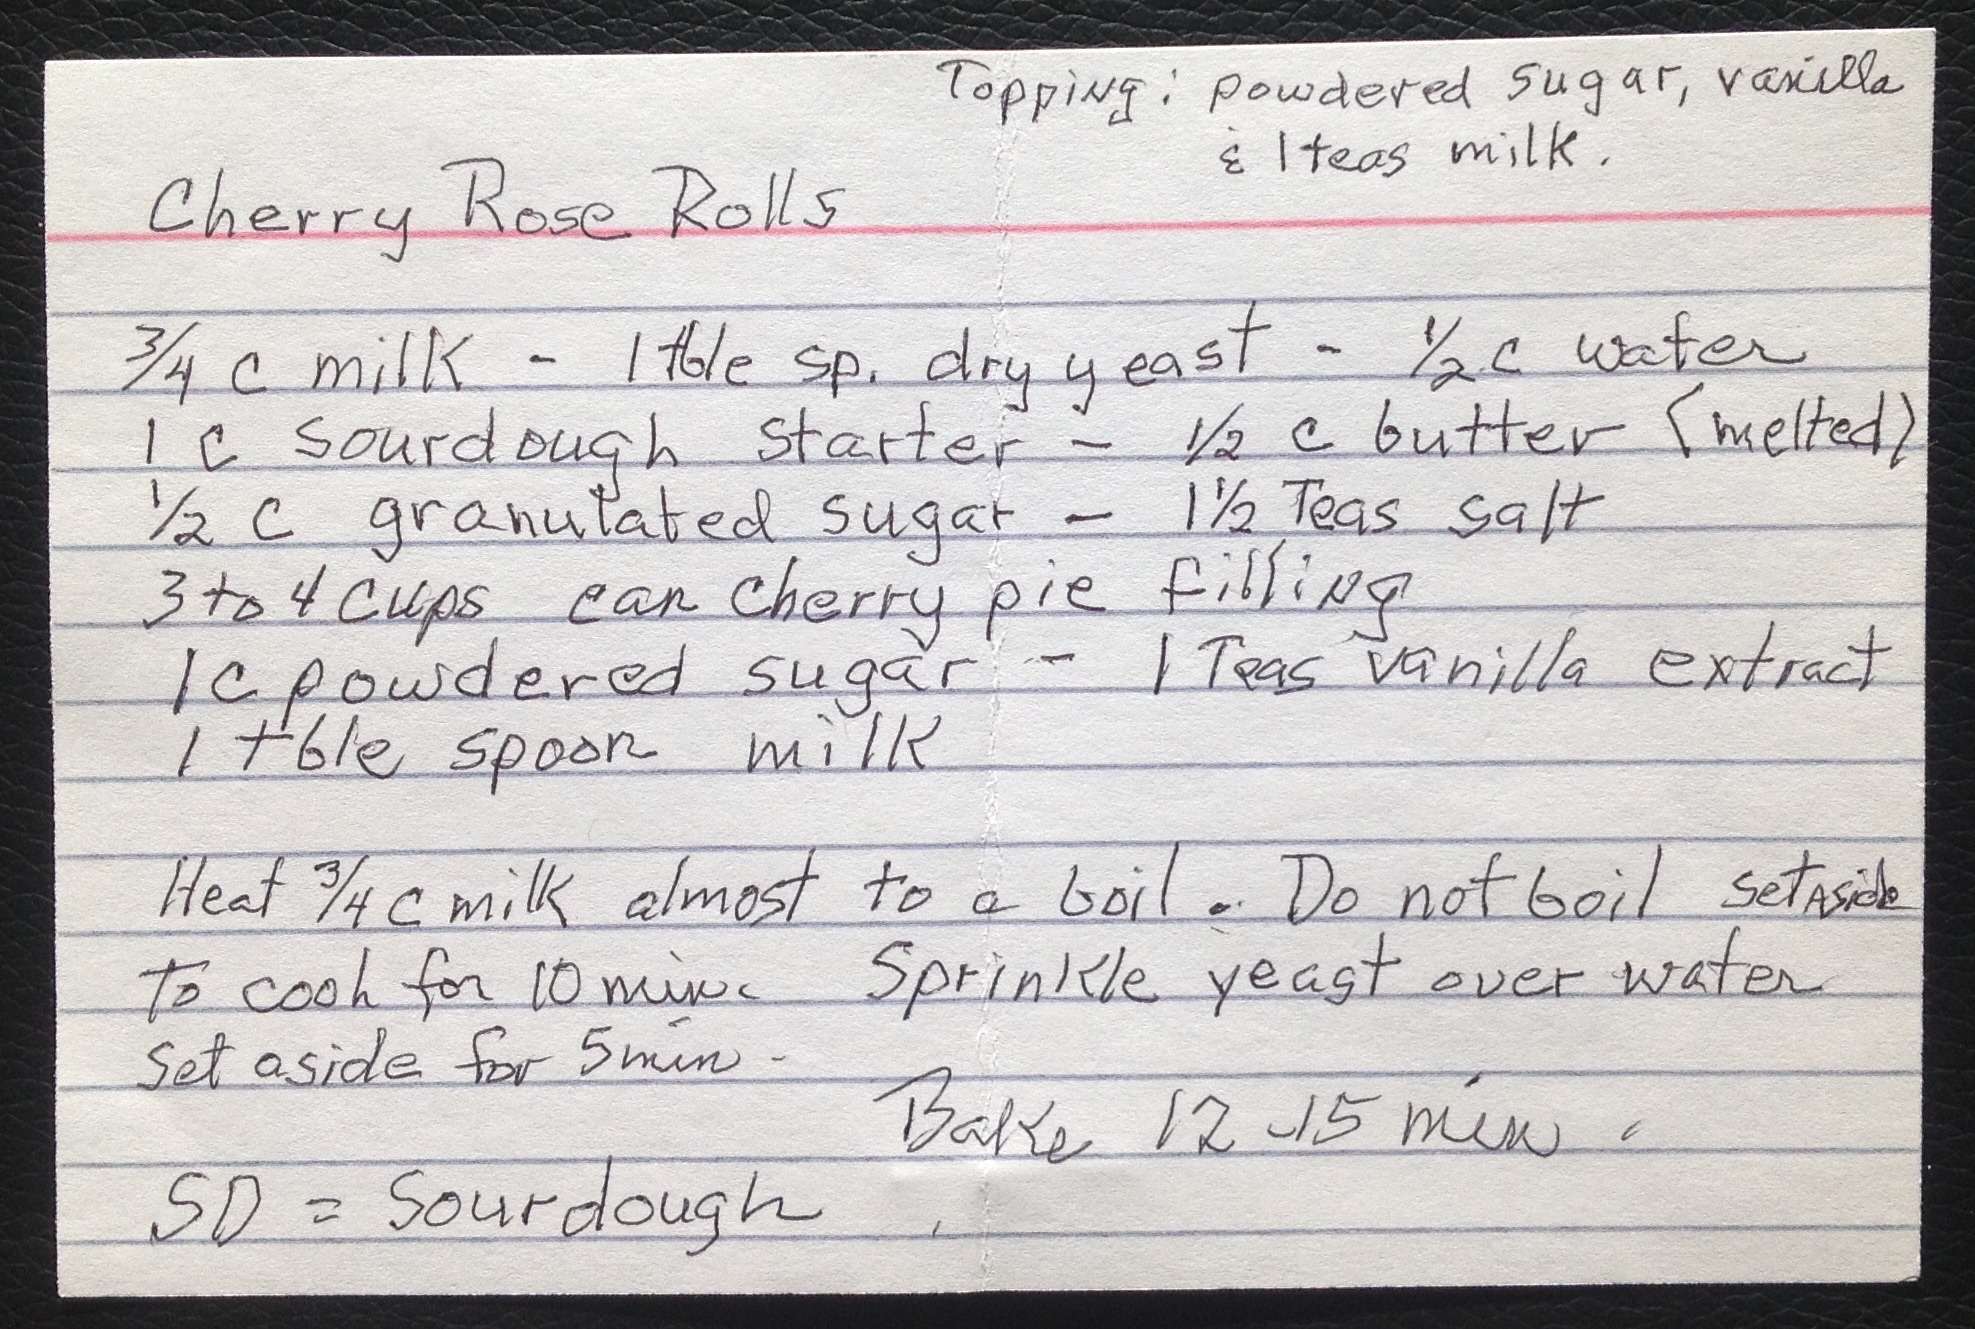 Topping: powdered sugar, vanilla
& 1 teas milk.
Cherry Rose Rolls
3/4 c milk - 1 tble sp. dry yeast - 1/2 c water
1 c sourdough starter - 1/2 c butter (melted)
1/2 c granulated sugar - 1 1/2 Teas salt
3 to 4 cups can cherry pie filling
1 c powdered sugar - 1 Teas vanilla extract
1 tble spoon milk
Heat 3/4 c milk almost to a boil. Do not boil set aside
to cook for 10 min. Sprinkle yeast over water
set aside for 5 min -
Bake 12-15 min.
SD = Sourdough